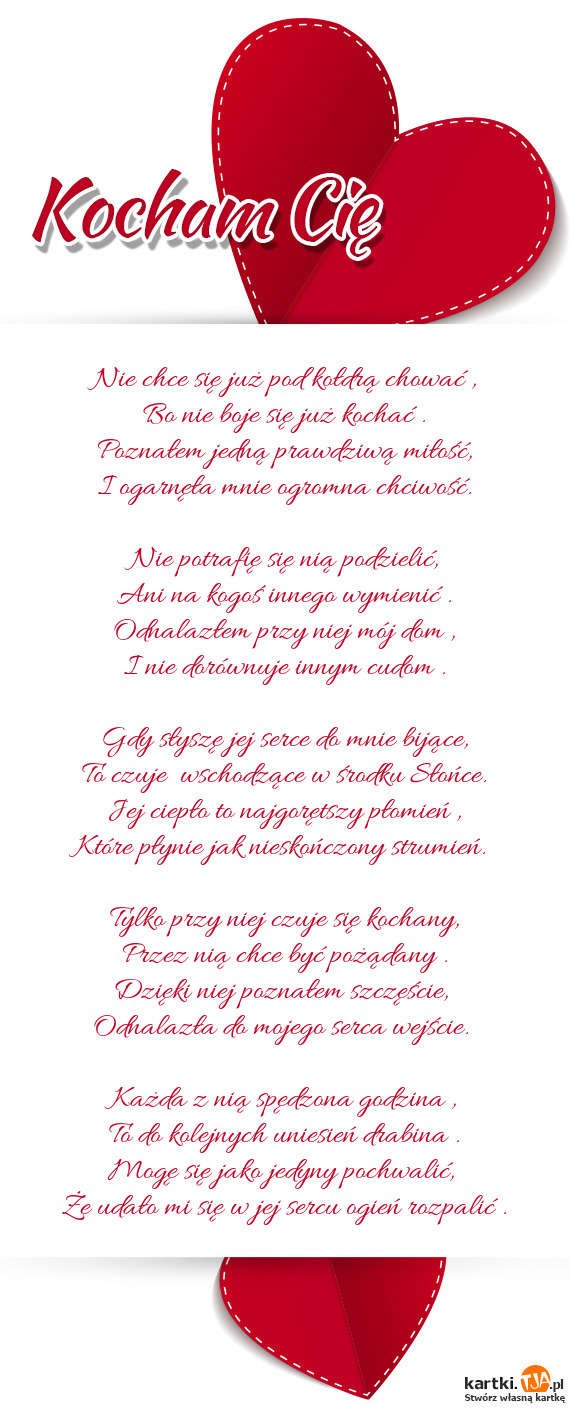 Kocham Cię
Nie chce się już pod kołdrą chować ,
Bo nie boje się już kochać .
Poznałem jedną prawdziwą miłość,
I ogarnęła mnie ogromna chciwość.
Nie potrafię się nią podzielić,
Ani na kogoś innego wymienić .
Odnalazłem przy niej mój dom ,
I nie dorównuje innym cudom .
Gdy słyszę jej serce do mnie bijące,
To czuje wschodzące w środku Słońce.
Jej ciepło to najgorętszy płomień ,
Które płynie jak nieskończony strumień.
Tylko przy niej czuje się kochany,
Przez nią chce być pożądany .
Dzięki niej poznałem szczęście,
Odnalazła do mojego serca wejście.
Każda z nią spędzona godzina ,
To do kolejnych uniesień drabina .
Mogę się jako jedyny pochwalić,
Że udało mi się w jej sercu ogień rozpalić .
kartki.TJA.pl
Stwórz własną kartkę